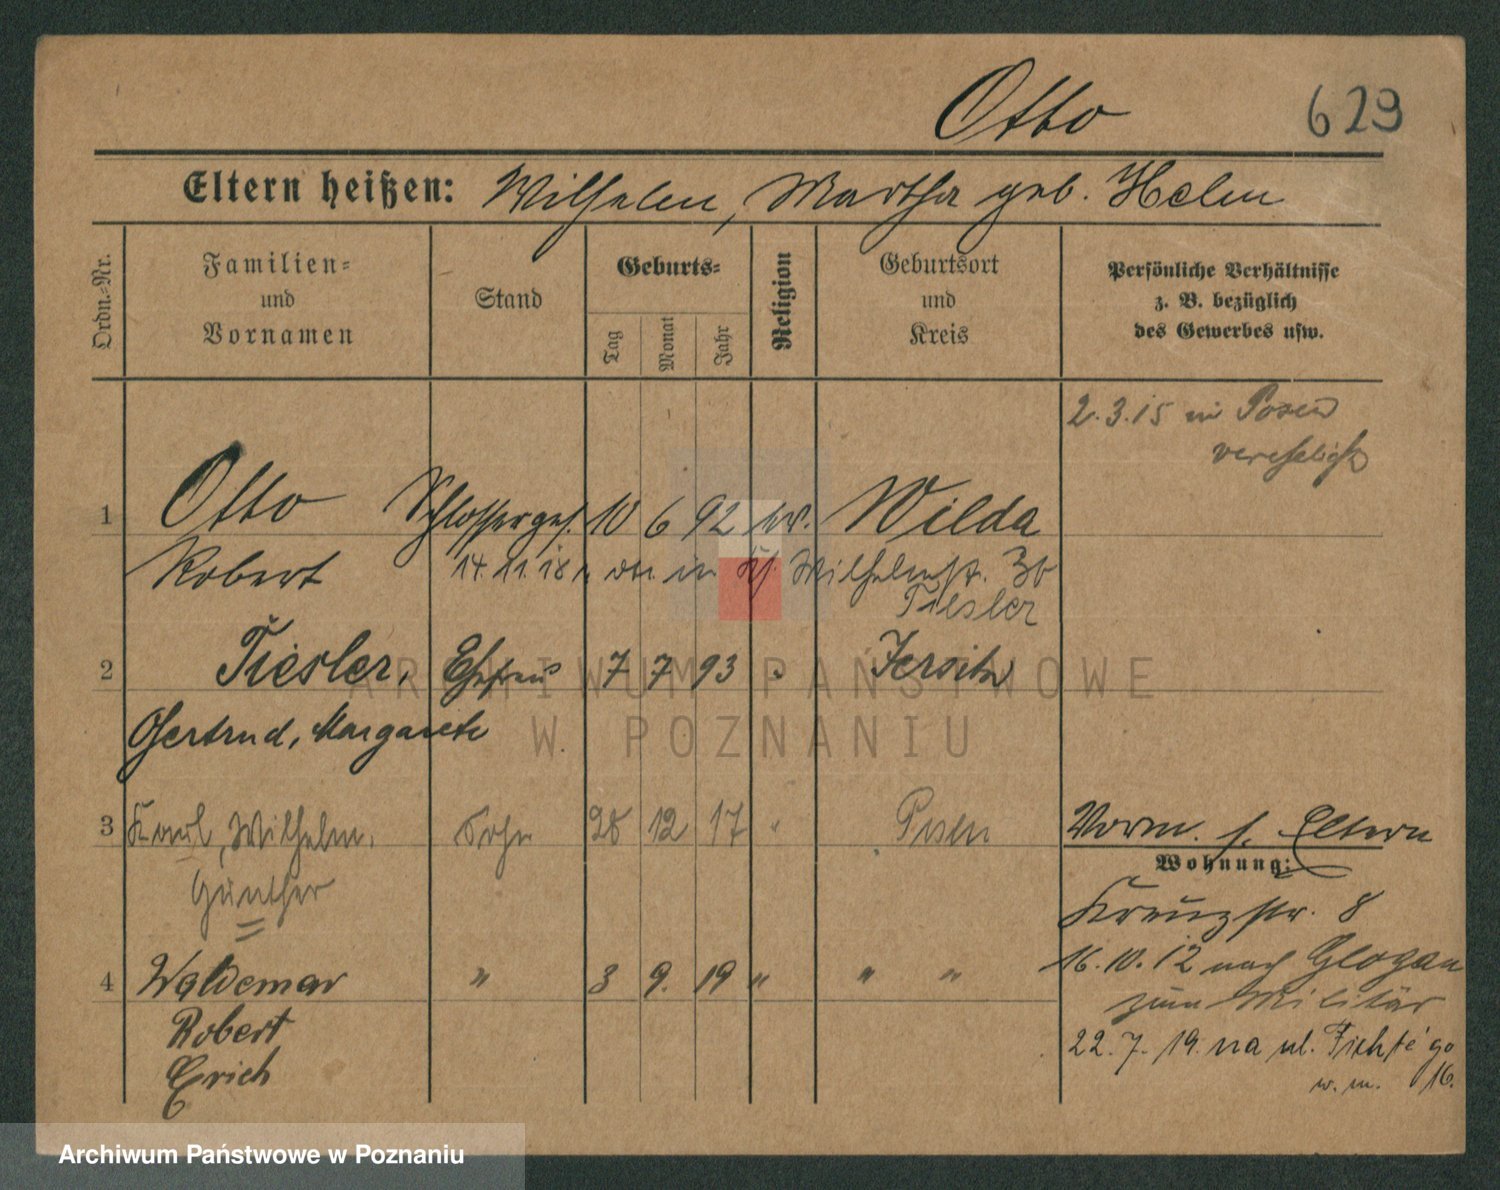 Otto 629
Eltern heißen: Wilhelm, Martha geb. Helm
Ordn.=Nr.
Familien= und Vornamen
Stand
Geburts=
Tag Monat Jahr
Religion
Geburtsort und Kreis
Persönliche Verhältnisse z. B. bezüglich des Gewerbes usw.
2.3.15 in Posen
verehelicht
1 Otto Schlosserges. 10 6 92 ev. Wilda
Robert 14.11.18 in Wilhelmstr. 3b
Tiesler
2 Tiesler, Ehefrau 7 7 93 " Jersitz
Gertrud, Margarete
3 Karl, Wilhelm, Sohn 28 12 17 " Posen
Günther
Vorm. s. Eltern
Wohnung:
Kreuzstr. 8
4 Waldemar " 3 9. 19 " " "
Robert
Erich
16.10.12 nach Glogau
zum Militär
22.7.19. na ul. Fichte'go
w. m. 16.
ARCHIWUM PAŃSTWOWE
W POZNANIU
Archiwum Państwowe w Poznaniu